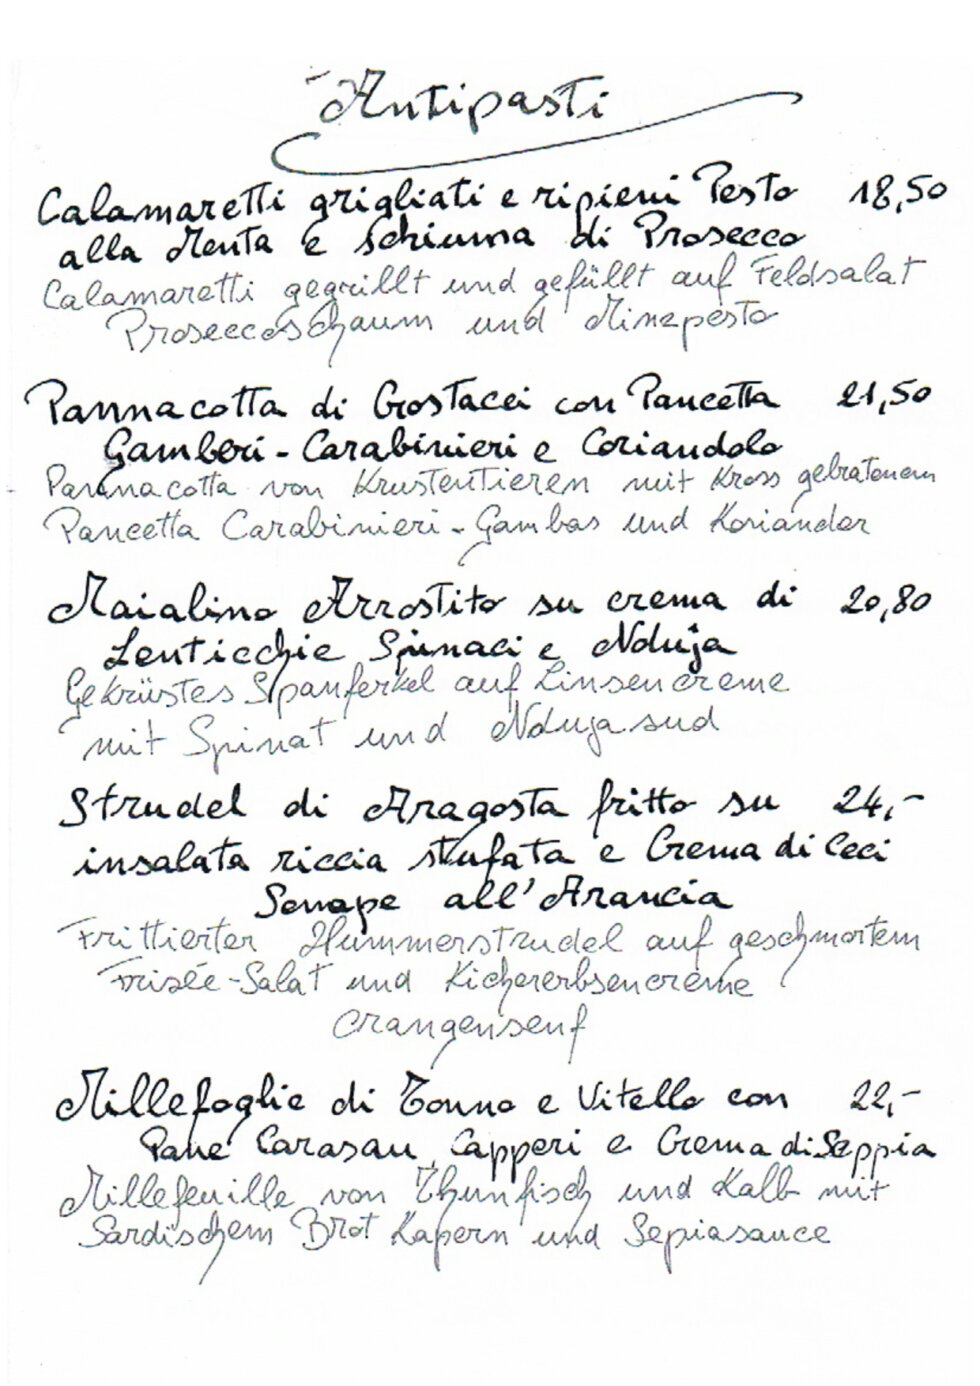 Antipasti
Calamaretti grigliati e ripieni Pesto 18,50
alla Menta e Schiuma di Prosecco
Calamaretti gegrillt und gefüllt auf Feldsalat
Proseccoschaum und Minzpesto
Pannacotta di Crostacei con Pancetta 21,50
Gamberi-Carabinieri e Coriandolo
Pannacotta von Krustentieren mit Kross gebratenem
Pancetta Carabinieri-Gambas und Koriander
Maialino Arrostito su crema di 20,80
Lenticchie Spinaci e Nduja
Gekrüstes Spanferkel auf Linsencreme
mit Spinat und Nduja sud
Strudel di Aragosta fritto su 24,-
insalata riccia stufata e Crema di Ceci
Senape all'Arancia
Frittierter Hummerstrudel auf geschmortem
Frisée-Salat und Kichererbsencreme
Orangensenf
Millefoglie di Tonno e Vitello con 22,-
Pane Carasau, Capperi e Crema di Seppia
Millefeuille von Thunfisch und Kalb mit
Sardischem Brot Kapern und Sepiasauce